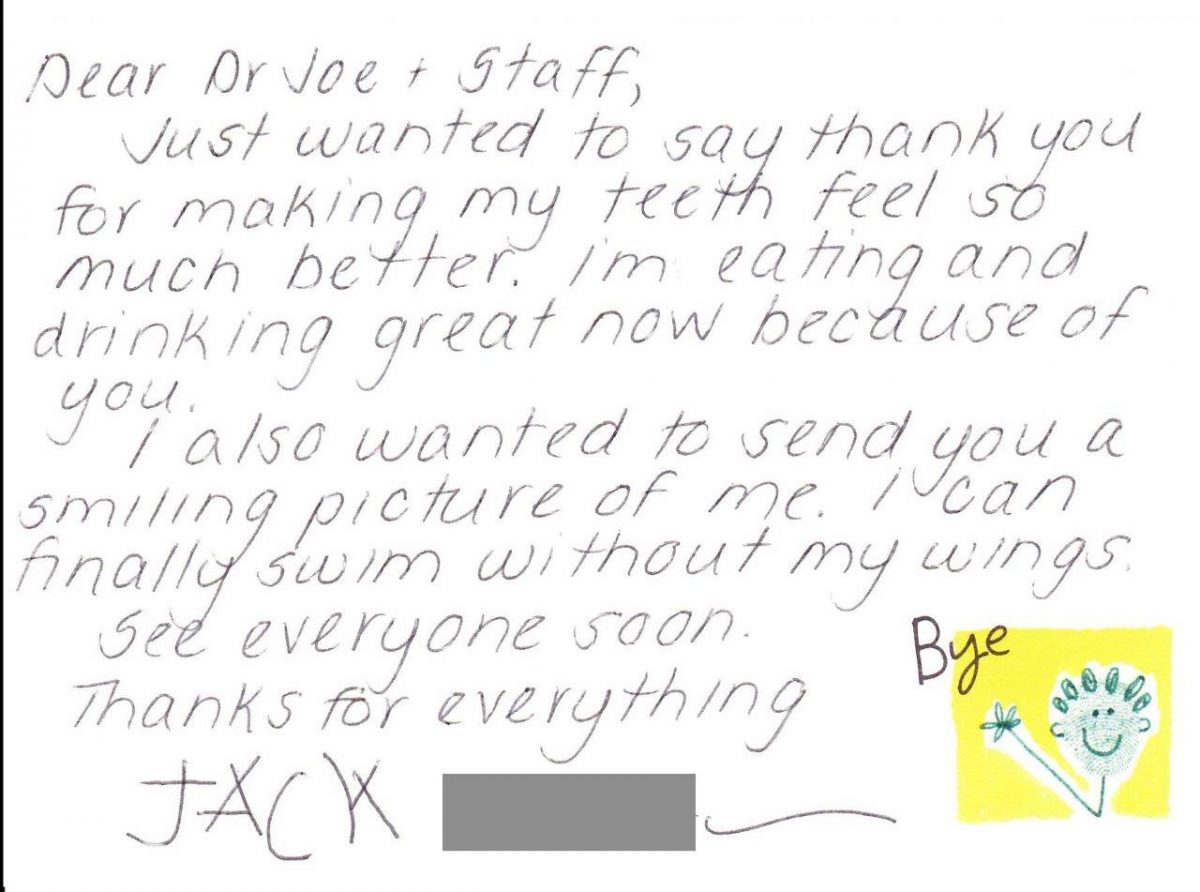 Dear Dr Joe + Staff,
Just wanted to say thank you
for making my teeth feel so
much better. I'm eating and
drinking great now because of
you.
I also wanted to send you a
smiling picture of me. I can
finally swim without my wings.
See everyone soon.
Thanks for everything
JACK
Bye